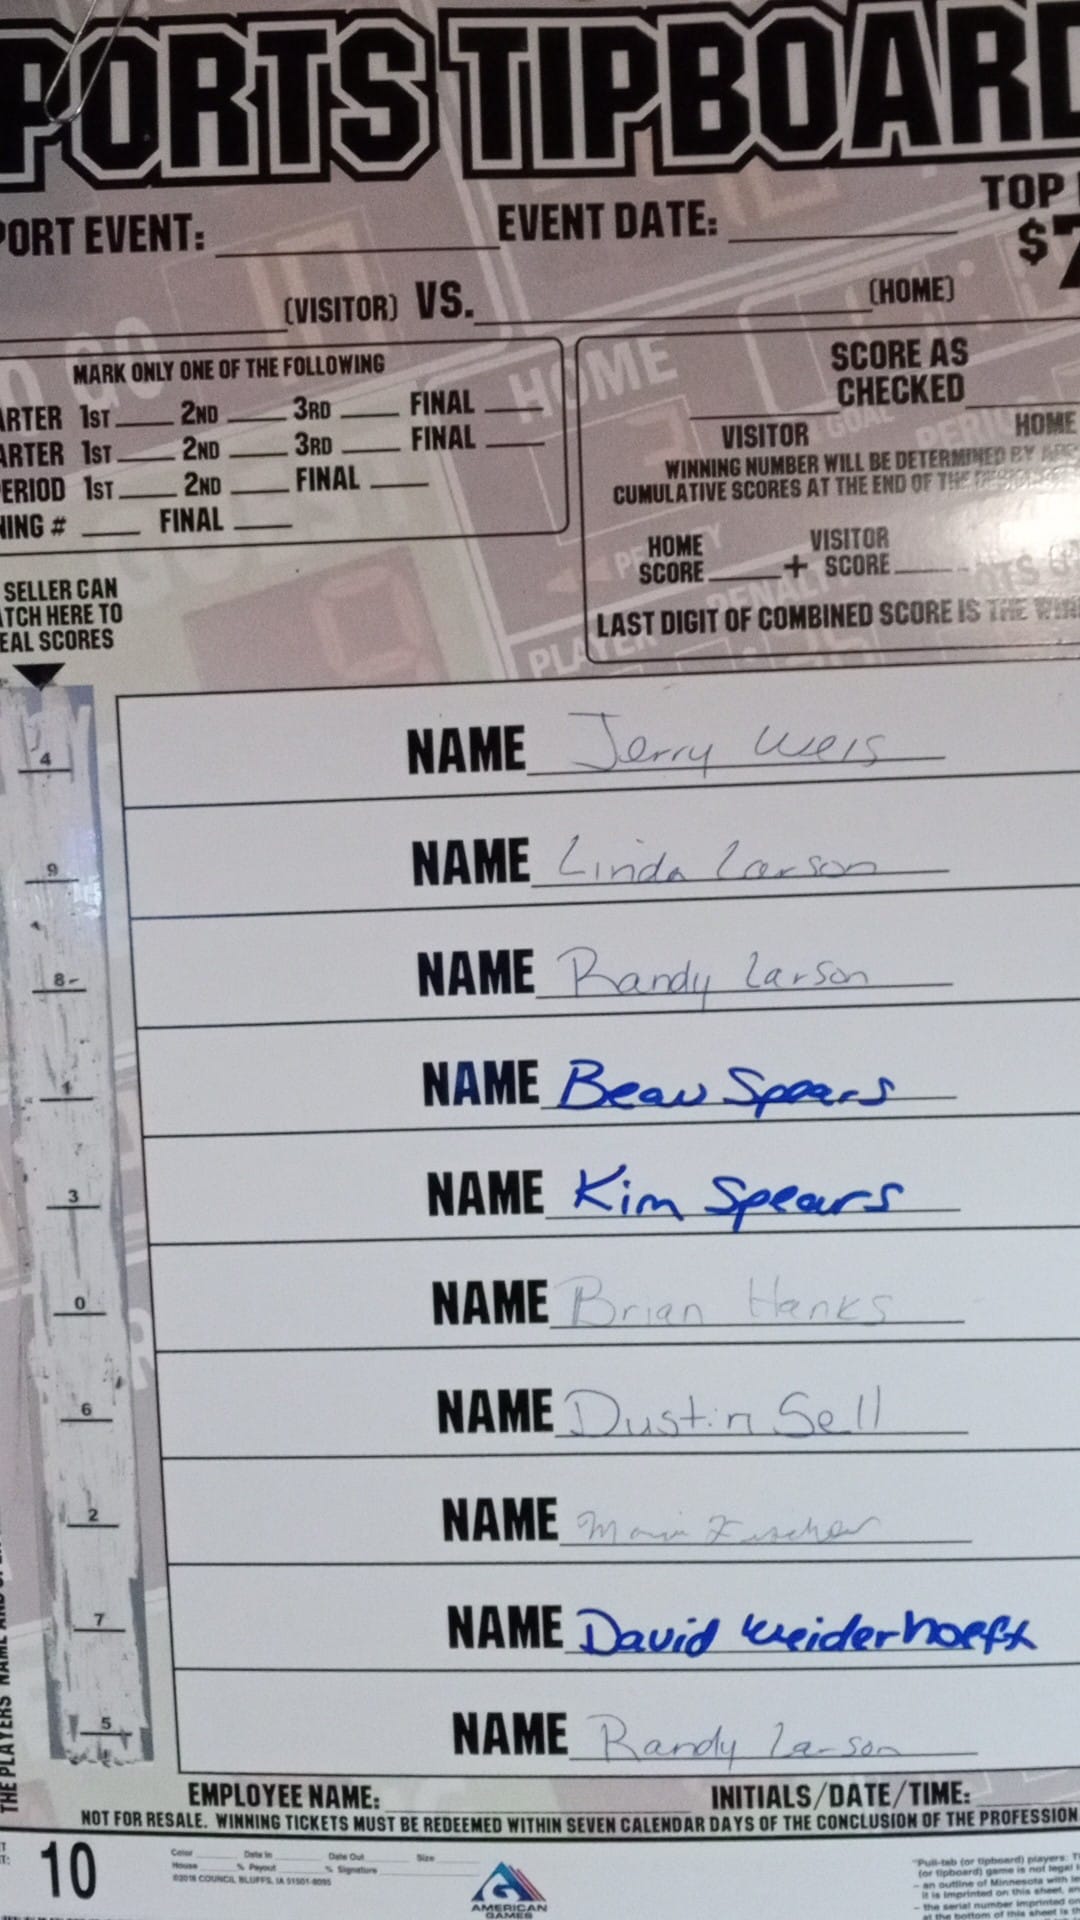 PORTS TIPBOARD
PORT EVENT: EVENT DATE:
TOP
$7
(VISITOR) VS. (HOME)
MARK ONLY ONE OF THE FOLLOWING
ARTER 1ST 2ND 3RD FINAL
ARTER 1ST 2ND 3RD FINAL
ERIOD 1ST 2ND FINAL
NING # FINAL
SCORE AS
CHECKED
VISITOR HOME
WINNING NUMBER WILL BE DETERMINED BY
CUMULATIVE SCORES AT THE END OF THE
HOME SCORE + VISITOR SCORE
LAST DIGIT OF COMBINED SCORE IS THE WIN
SELLER CAN
ATCH HERE TO
EAL SCORES
4 NAME Jerry Weis
9 NAME Linda Larson
8 NAME Randy Larson
1 NAME Beau Spears
3 NAME Kim Spears
0 NAME Brian Hanks
6 NAME Dustin Sell
2 NAME Fischer
7 NAME David Weiderhoeft
5 NAME Randy Larson
THE PLAYERS NAME AND
EMPLOYEE NAME: INITIALS/DATE/TIME:
NOT FOR RESALE. WINNING TICKETS MUST BE REDEEMED WITHIN SEVEN CALENDAR DAYS OF THE CONCLUSION OF THE PROFESSION
10
Color Date In Date Out Size
House % Payout % Signature
©2018 COUNCIL BLUFFS, IA 51501-8095
AMERICAN
GAMES
"Pull-tab (or tipboard) players: T
(or tipboard) game is not legal
- an outline of Minnesota with
it is imprinted on this sheet, an
- the serial number imprinted on
at the bottom of this sheet is th